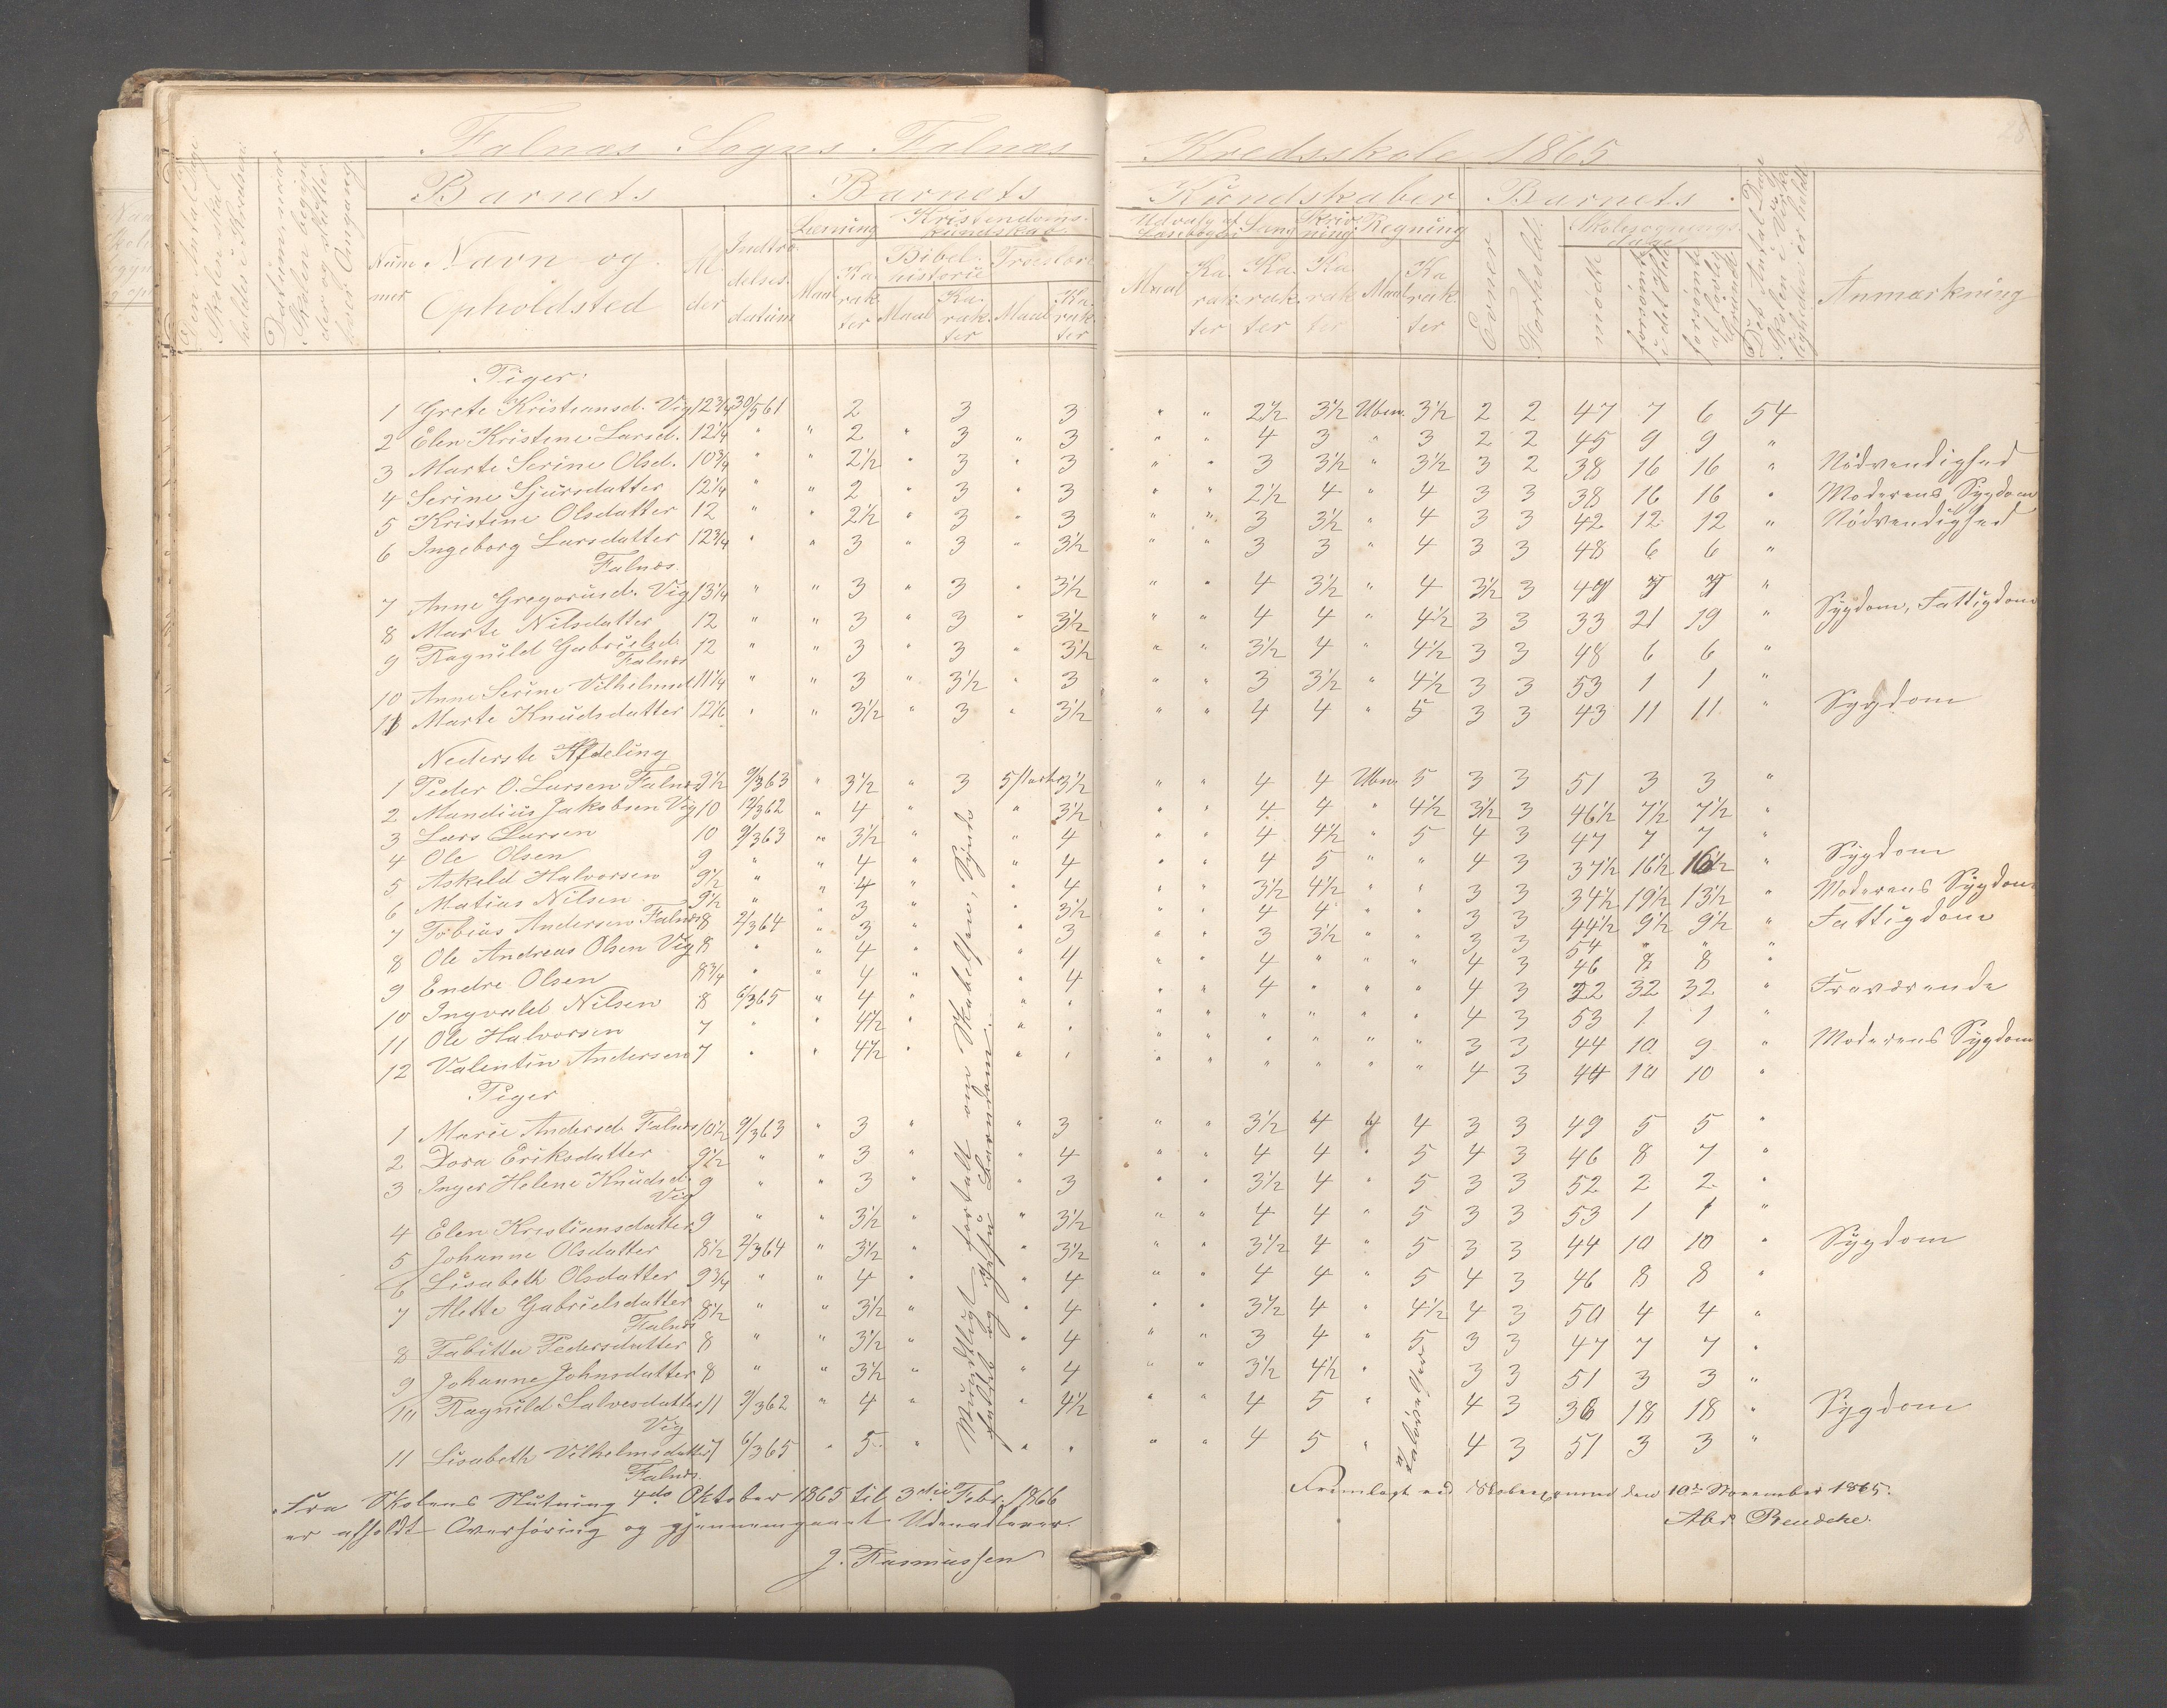 Falnæs Sogns Falnæs Kredsskole 1865
Barnets Barnets Kundskaber Barnets
Det Antal Dage Skolen skal holdes i Kredsen
Datum, naar Skolen begynder og slutter hver Omgang
Nummer
Navn og Opholdsted
Alder
Indtrædelsesdatum
Læsning Maal Karakter
Kristendomskundskab
Bibelhistorie Maal Karakter
Troeslære Maal Karakter
Udvalg af Læsebogen Maal Karakter
Sang Karakter
Skrivning Karakter
Regning Maal Karakter
Evner
Forhold
Skolesøgningsdage
mødt
forsømt i det Hele
forsømt af lovlig Grund
Det Antal Dage Skolen i Virkeligheden er holdt
Anmærkning
Piger
1 Grete Kristiansd. Vig 12 3/4 30/5 61 2 3 3 " " 2 1/2 3 1/2 Uben. 3 1/2 2 2 47 7 6 54
2 Elen Kristine Larsd. 12 1/4 " " 2 " 3 " 3 " " 4 3 " 3 2 2 45 9 9 "
3 Marte Serine Olsd. 10 3/4 " " 2 1/2 " 3 " 3 " " 3 3 1/2 " 3 1/2 3 2 38 16 16 " Nödvendighed
4 Serine Sjursdatter 12 1/4 " " 2 " 3 " 3 " " 2 1/2 4 " 4 3 3 38 16 16 " Moderens Sygdom
5 Kristine Olsdatter 12 " " 2 1/2 " 3 " 3 " " 3 3 1/2 " 4 3 3 42 12 12 " Nödvendighed
6 Ingeborg Larsdatter 12 3/4 " " 3 " 3 " 3 1/2 " " 3 3 " 4 3 3 48 6 6 "
Falnæs.
7 Anne Gregoriusd. Vig 13 1/4 " " 3 " 3 " 3 1/2 " " 4 3 1/2 " 4 3 1/2 3 "
8 Marte Nilsdatter 12 " " 3 " 3 " 3 1/2 " " 4 4 " 4 1/2 3 3 33 21 19 " Sygdom, Fattigdom
9 Ragnild Gabrielsd. 12 " " 3 " 3 " 3 1/2 " " 3 1/2 4 " 4 1/2 3 3 48 6 6 "
Falnæs
10 Anne Serine Vilhelmsd 11 1/4 " " 3 " 3 1/2 " 3 " " 3 3 1/2 " 4 1/2 3 3 53 1 1 "
11 Marte Knudsdatter " " 3 1/2 " 3 " 3 1/2 " " 4 4 " 5 3 3 43 11 11 " Sygdom
Nederste Afdeling
1 Peder O. Larsen Falnæs 9 1/2 9/3 63 " 3 1/2 " 3 5 3 1/2 " " 4 4 Uben 5 3 3 51 3 3 "
2 Mandius Jakobsen Vig 10 12/3 62 " 4 " " 3 1/2 " " 4 4 " 4 1/2 3 1/2 3 46 1/2 7 1/2 7 1/2 "
3 Lars Larsen 10 9/3 63 " 3 1/2 " " 4 " " 4 4 1/2 " 5 4 3 47 7 7 "
4 Ole Olsen 9 " " 4 " " 4 " " 4 5 " " 4 3 37 1/2 16 1/2 16 1/2 " Sygdom
5 Askild Halvorsen 9 1/2 " " 4 " " 4 " " 3 1/2 4 1/2 " " 3 3 34 1/2 19 1/2 13 1/2 " Moderens Sygdom
6 Matias Nilsen 9 1/2 " " 3 " " 3 1/2 " " 4 4 " " 3 3 44 1/2 9 1/2 9 1/2 " Fattigdom
7 Tobias Andersen Falnæs 8 2/3 64 " 3 " " 3 " " 3 3 1/2 " " 3 3 54 " " "
8 Ole Andreas Olsen Vig 8 " " 4 " " 4 " " 4 " " " 4 3 46 8 8 "
9 Endre Olsen 8 3/4 " " 4 " " 4 " " 4 " " " 4 3 22 32 32 " Fraværende
10 Ingvald Nilsen 8 6/3 65 " 4 " " " " " " " " " 4 3 53 1 1 "
11 Ole Halvorsen 7 " " 4 1/2 " " " " " " " " " 3 3 44 10 9 " Moderens Sygdom
12 Valentin Andersen 7 " " 4 1/2 " " " " " " " " " 4 3 44 10 10 "
Piger
1 Marie Andersd. Falnæs 10 1/2 9/3 63 " 3 " " 3 " " 3 1/2 4 4 4 3 3 49 5 5 "
2 Dora Eriksdatter 9 1/2 " " 3 " " 4 " " 4 4 " 5 4 3 46 8 7 "
3 Inger Helene Knudsd. 9 " " 3 " " 3 " " 3 1/2 4 " 5 3 3 52 2 2 "
Vig
4 Elen Kristiansdatter 9 " " 3 1/2 " " 3 1/2 " " 4 4 " 5 3 3 53 1 1 "
5 Johanne Olsdatter 8 1/2 2/3 64 " 3 1/2 " " 3 1/2 " " 3 1/2 4 " 5 3 3 44 10 10 " Sygdom
6 Lisabeth Olsdatter 9 3/4 " " 4 " " 4 " " 4 4 " 5 4 3 46 8 8 "
7 Alette Gabrielsdatter 8 1/2 " " 3 1/2 " " 4 " " 3 1/2 4 " 4 1/2 4 3 50 4 4 "
Falnæs
8 Tabitta Pedersdatter 8 " " 3 1/2 " " 4 " " 3 4 " 5 3 3 47 7 7 "
9 Johanne Johnsdatter 8 " " 3 1/2 " " 4 " " 3 1/2 4 1/2 " 3 3 51 3 3 "
10 Ragnild Salvesdatter 11 9/3 62 " 4 " " 4 1/2 " " 4 5 " 4 3 36 18 18 " Sygdom
Vig
11 Lisabeth Vilhelmsdatter 7 6/3 65 " 5 " " " " " 4 5 " 4 3 51 3 3 "
Falnæs.
Mundtligt fortalt om Skabelsen, Syndefaldet og Jesu Barndom.
Talövelser
Fra Skolens Slutning 4de Oktober 1865 til 3die Febr. 1866
er afholdt Overhöring og gjennemgaaet Udenadlexer.
J. Rasmussen
Fremlagt ved den 10de November 1865.
Abr.